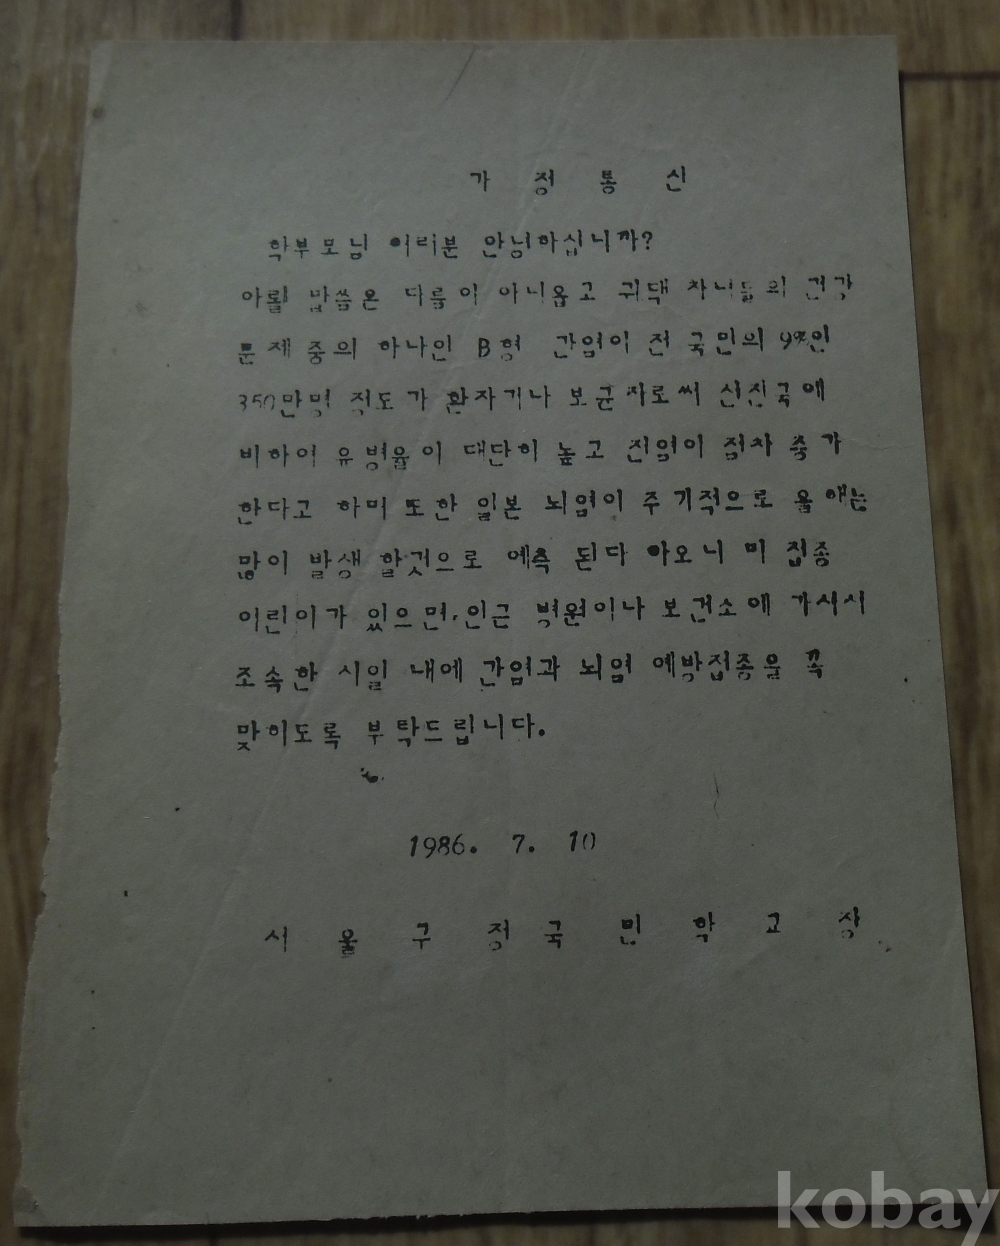 가 정 통 신
학부모님 여러분 안녕하십니까?
아뢸 말씀은 다름이 아니옵고 귀댁 자녀들의 건강
문제 중의 하나인 B형 간염이 전 국민의 9%인
350만명 정도가 환자거나 보균자로써 선진국에
비하여 유병율이 대단히 높고 전염이 점차 증가
한다고 하며 또한 일본 뇌염이 주기적으로 올해는
많이 발생 할것으로 예측 된다 하오니 미 접종
어린이가 있으면, 인근 병원이나 보건소에 가셔서
조속한 시일 내에 간염과 뇌염 예방접종을 꼭
맞히도록 부탁드립니다.
1986. 7. 10
서 울 구 정 국 민 학 교 장
kobay